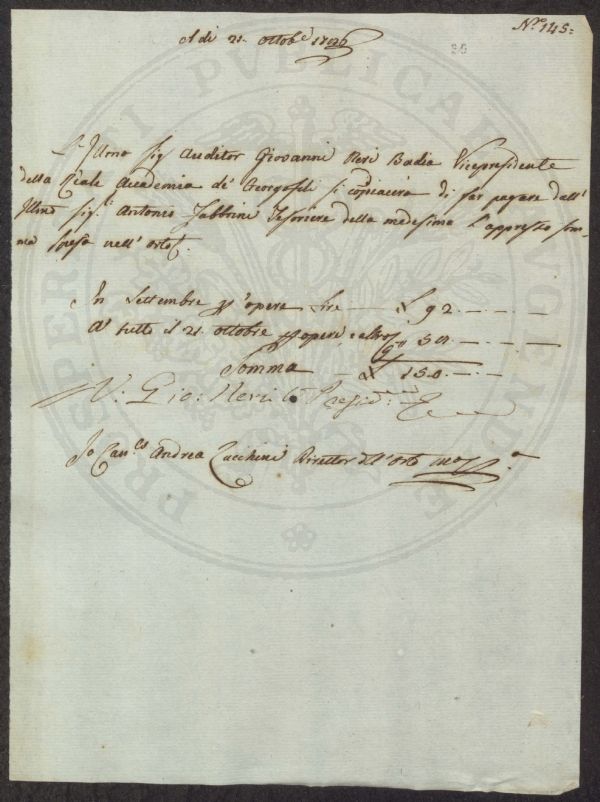 N.º 145:
A di 21. ottob.e
36
L'Illmo Sig Auditor Giovanni Neri Badia Vicepresidente
della Reale Accademia de' Georgofili si compiacerà di far pagare dall'
Illmo Sig.r Antonio Fabbrini Tesoriere della medesima l'appresso som-
ma spesa nell'orto
In Settembre p opere Lire 92
A' tutti il 21 ottobre p opere e altro
Somma 150
V: Gio: Neri
Io Can.co Andrea Zucchini Direttor del'Orto
PROSPERITATI PUBLICAE AUGENDAE